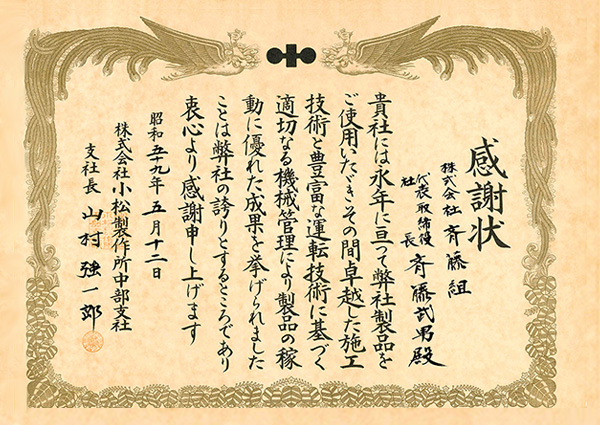 感謝状
株式会社 斉藤組
代表取締役
社長 斉藤武男殿
貴社には永年に亘って弊社製品を
ご使用いたゞきその間卓越した施工
技術と豊富な運転技術に基づく
適切なる機械管理により製品の稼
動に優れた成果を挙げられました
ことは弊社の誇りとするところであり
衷心より感謝申し上げます
昭和五十九年五月十二日
株式会社小松製作所中部支社
支社長 山村強一郎